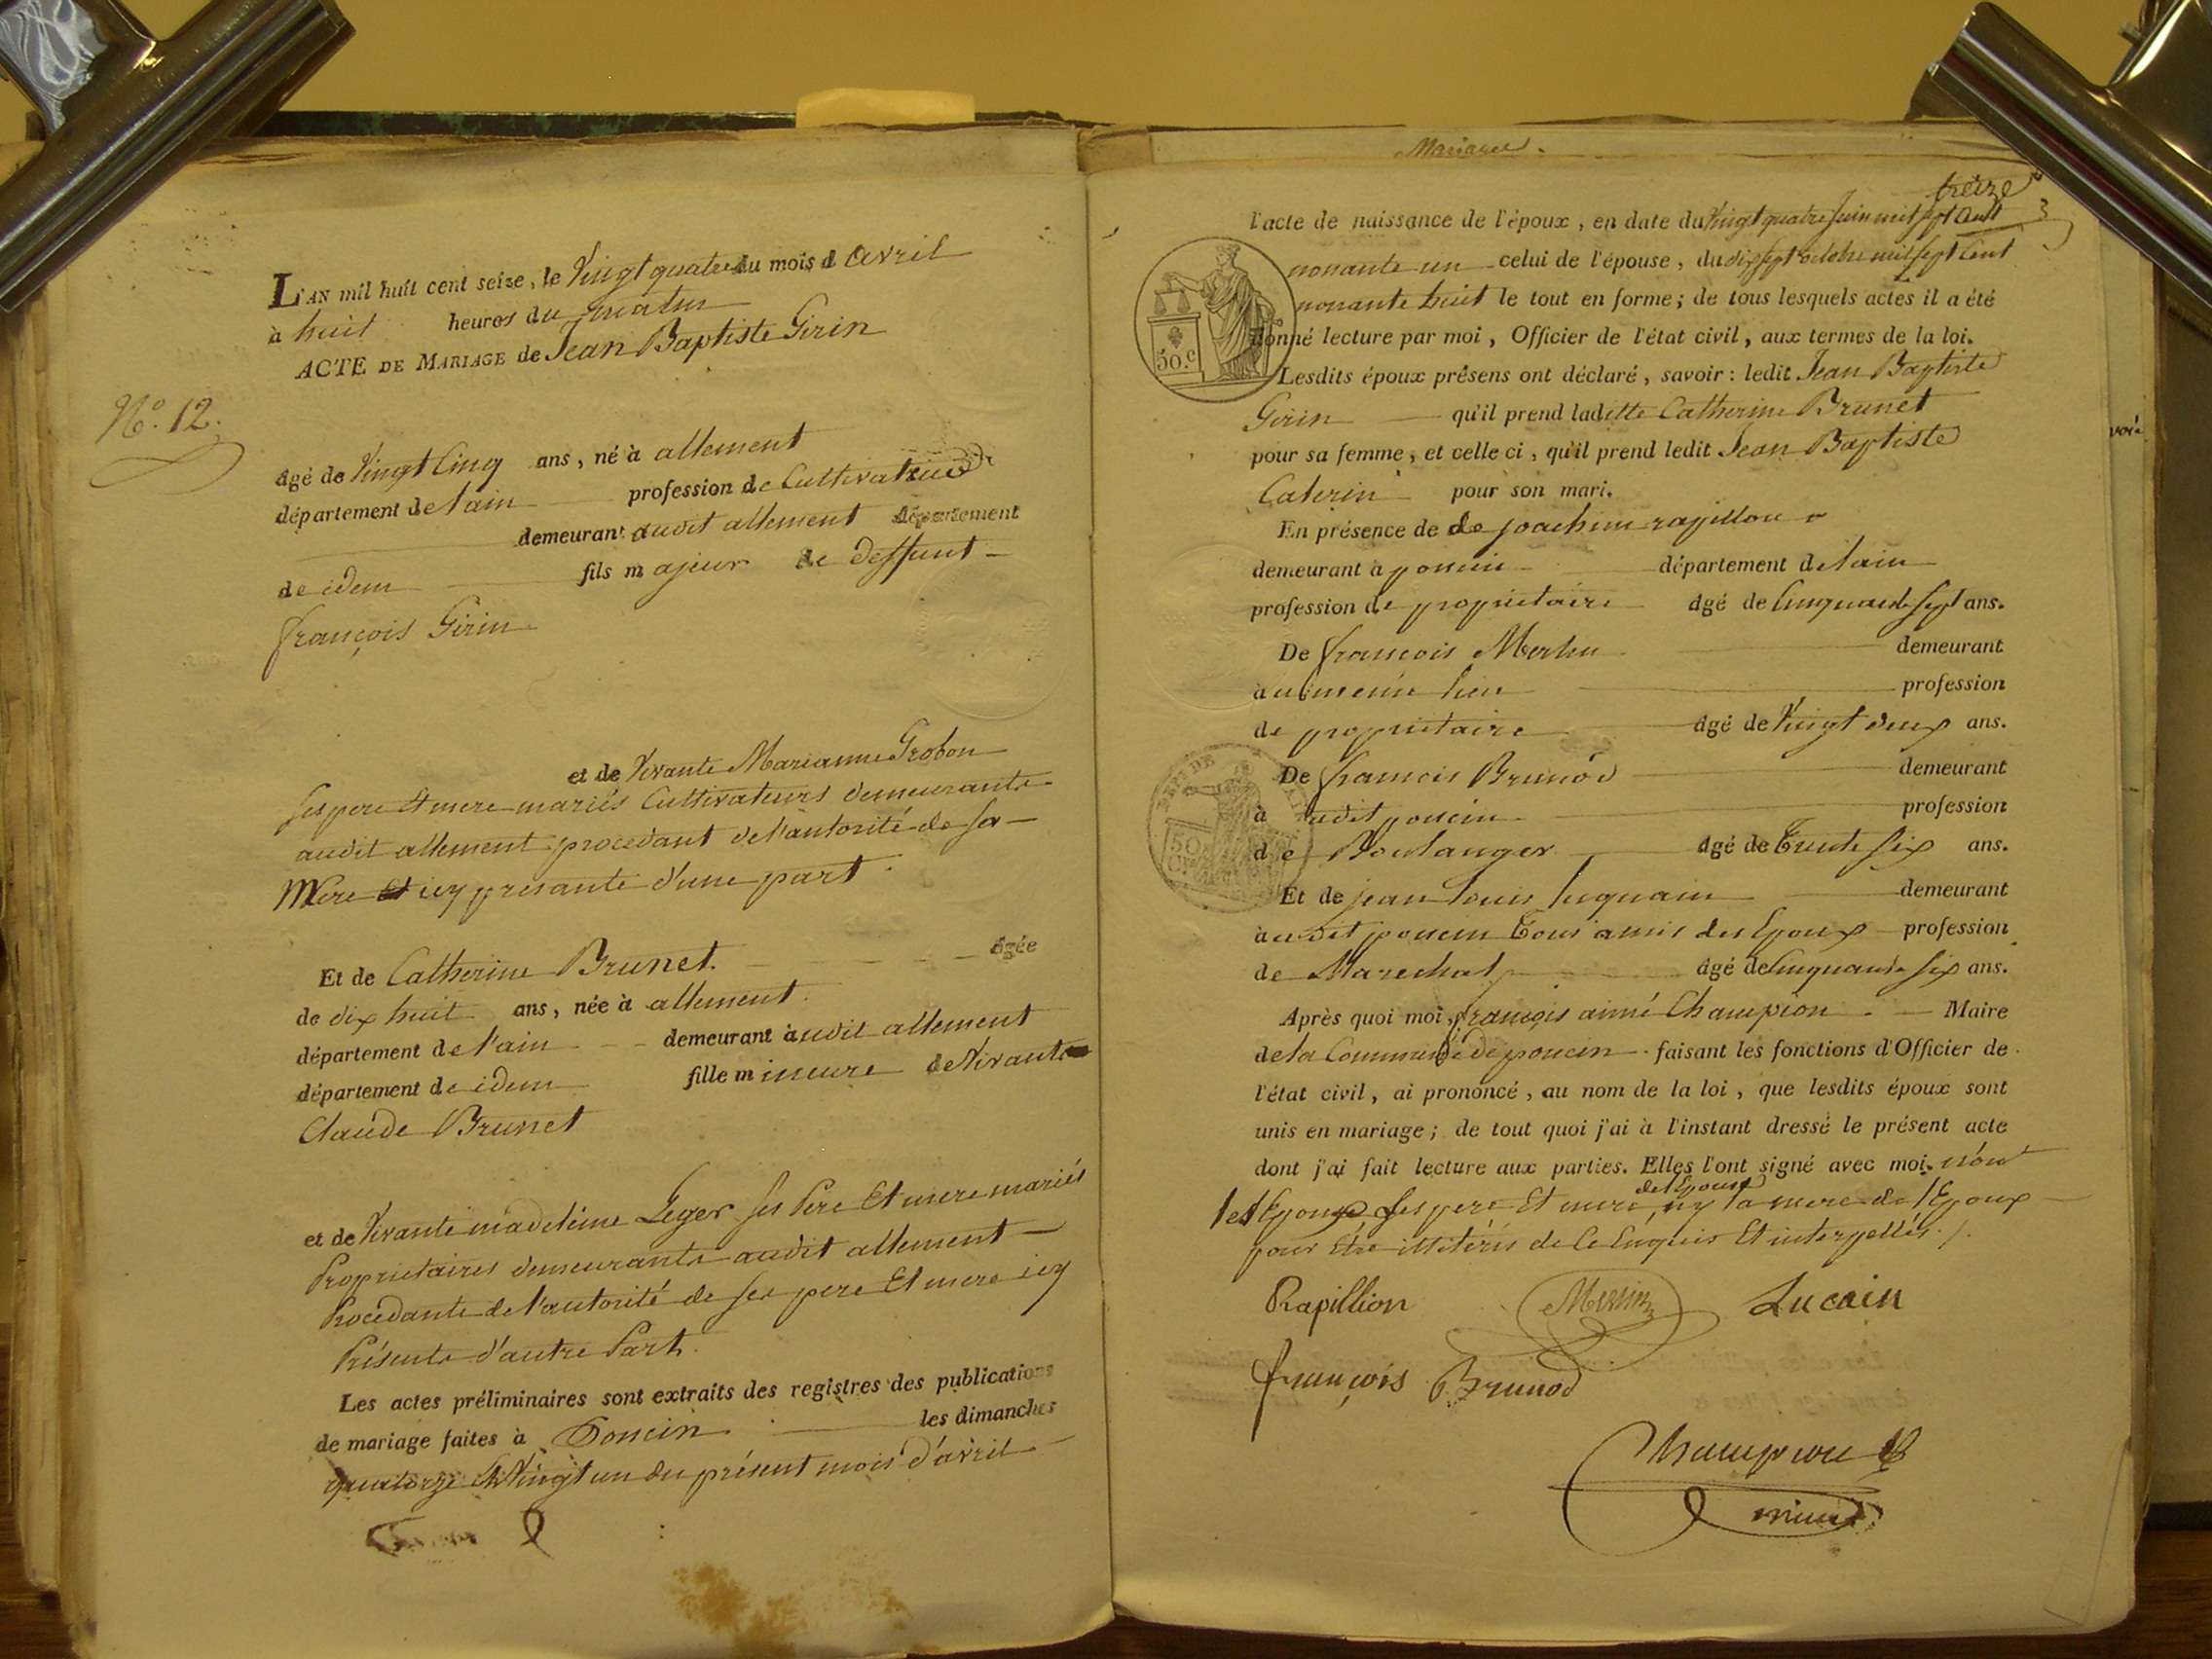 L'AN mil huit cent seize, le Vingt quatre du mois d avril
à huit heures du matin
ACTE DE MARIAGE de Jean Baptiste Girin
N.º 12.
âgé de Vingt Cinq ans, né à allement
département de l'ain profession de Cultivateur
demeurant audit allement département
de idem fils majeur de deffunt
françois Girin
et de Vivante Marianne Grobon
ses pere et mere mariés Cultivateurs demeurants
audit allement procedant de l'autorité de sa
Mere icy presante d'une part.
Et de Catherine Brunet. âgée
de dix huit ans, née à allement.
département de l'ain demeurant audit allement
département de idem fille mineure de Vivants
Claude Brunet
et de Vivante madeleine Leger ses Pere Et mere mariés
Proprietaires demeurants audit allement
Procedante de l'autorité de ses pere Et mere icy
Présents d'autre Part.
Les actes préliminaires sont extraits des registres des publications
de mariage faites à Poncin les dimanches
quatorze et Vingt un du présent mois d'avril
Mariages.
treize
l'acte de naissance de l'époux, en date du Vingt quatre Juin mil sept Cent
nonante un celui de l'épouse, du dix sept octobre mil sept Cent
nonante huit le tout en forme; de tous lesquels actes il a été
donné lecture par moi, Officier de l'état civil, aux termes de la loi.
50.c
Lesdits époux présens ont déclaré, savoir: ledit Jean Baptiste
Girin qu'il prend laditte Catherine Brunet
pour sa femme, et celle ci, qu'il prend ledit Jean Baptiste
Caterin pour son mari.
En présence de de joachim rapillon
demeurant à poncin département de l'ain
profession de proprietaire âgé de Cinquante sept ans.
De françois Merlin demeurant
au même lieu profession
de proprietaire âgé de Vingt deux ans.
De francois Brunod demeurant
à udit poncin profession
de Boulanger âgé de Trente six ans.
Et de jean louis luquain demeurant
audit poncin Tous amis des Epoux profession
de Marechal âgé de Cinquante six ans.
Après quoi moi, françois aimé Champion Maire
de la Commune de poncin faisant les fonctions d'Officier de
l'état civil, ai prononcé, au nom de la loi, que lesdits époux sont
unis en mariage; de tout quoi j'ai à l'instant dressé le présent acte
dont j'ai fait lecture aux parties. Elles l'ont signé avec moi. non
de l'Epouse
les Epoux ses pere Et mere, ny la mere de l'Epoux
pour Etre illitérés de Ce Enquis Et interpellés.
Rapillion Merlin Lucain
françois Brunod
Champion